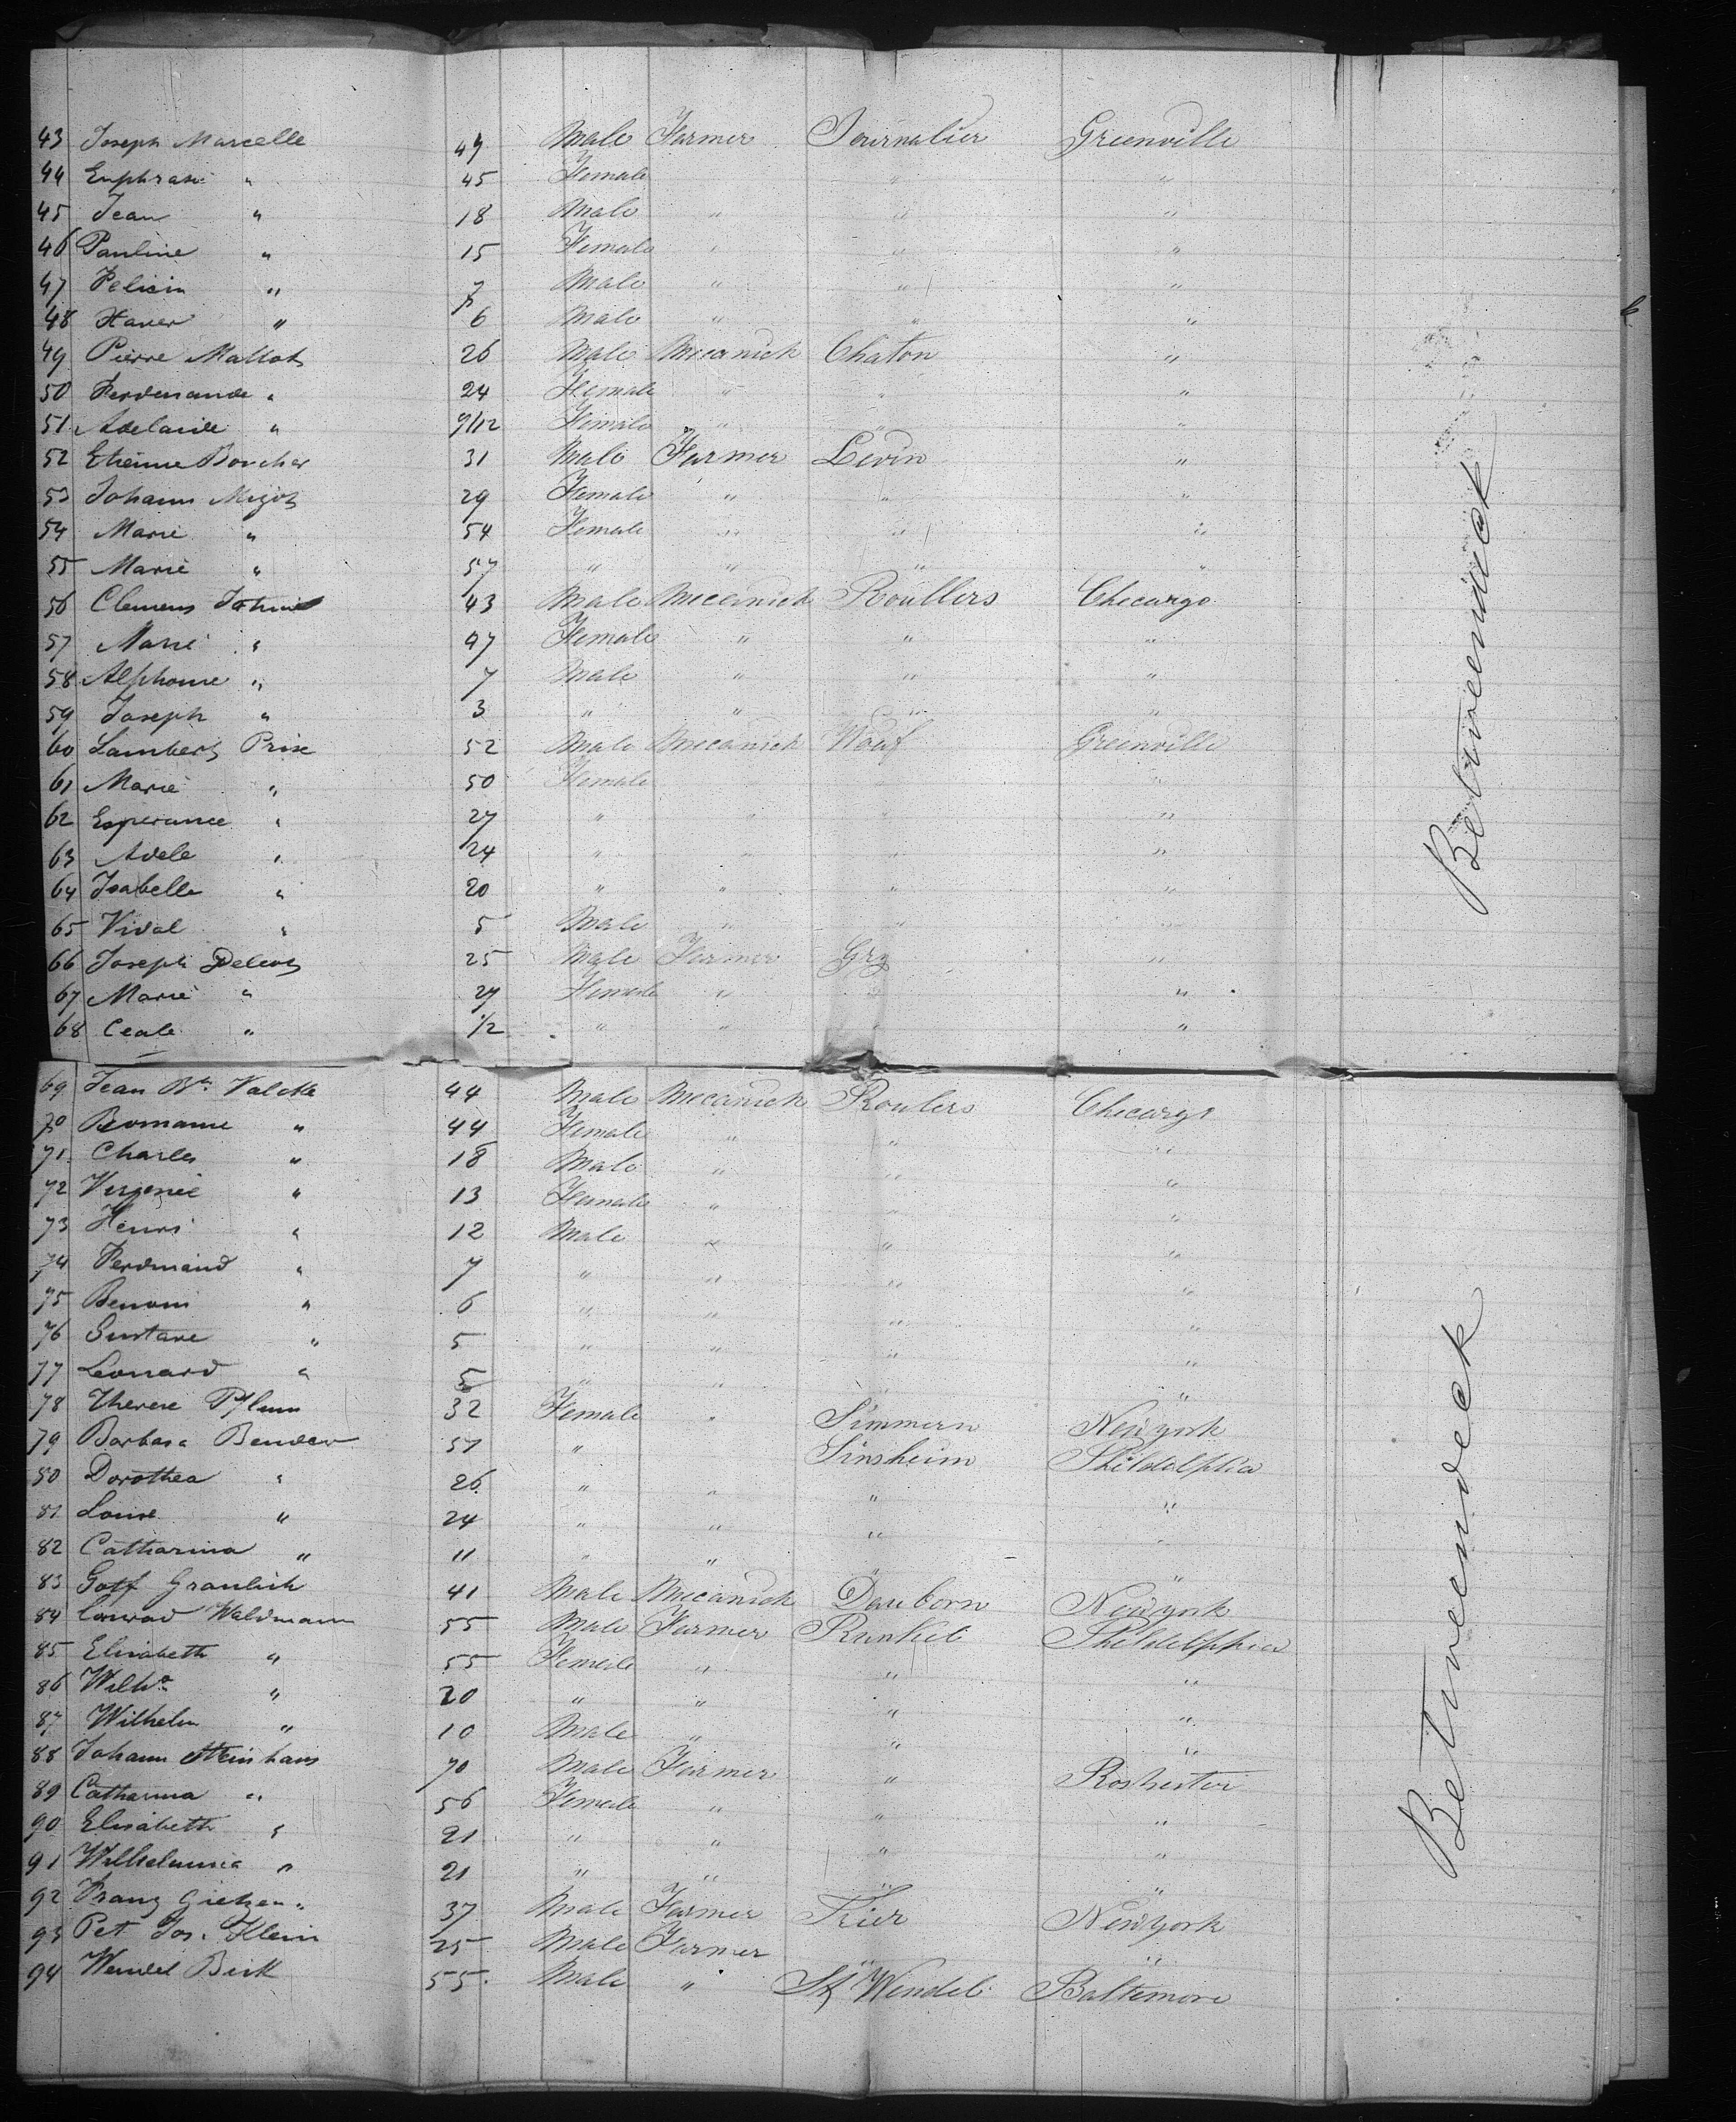 43 Joseph Marcelle 49 Male Farmer Journalier Greenville
44 Euphrasi " 45 Female " "
45 Jean " 18 Male " " "
46 Pauline " 15 Female " " "
47 Felicin " 7 Male " " "
48 Haver " 6 Male " " "
49 Pierre Mallot 26 Male Mecanick Chaton "
50 Ferdenande " 24 Female " " "
51 Adelaide " 9/12 Female " " "
52 Etienne Boucher 31 Male Farmer Levin "
53 Johann Migot 29 Female " " "
54 Marie " 54 Female " " "
55 Marie " 57 " " " "
56 Clemens 43 Male Mecanick Roullers Checargo
57 Marie " 47 Female " " "
58 Alphonse " 7 Male " " "
59 Joseph " 3 " " " "
60 Lambert Prise 52 Male Mecanick Greenville
61 Marie " 50 Female "
62 Esperance " 27 " " " "
63 Adele " 24 " " " "
64 Isabelle " 20 " " " "
65 Vidal " 5 Male " " "
66 Joseph 25 Male Farmer "
67 Marie " 27 Female " " "
68 Ceale " 1/2 " " " "
69 Jean Bte Valcke 44 Male Mecanick Roulers Checargo
70 " 44 Female " " "
71 Charles " 18 Male " " "
72 Virginie " 13 Female " " "
73 Henri " 12 Male " " "
74 Ferdinand " 7 " " " "
75 Benoni " 6 " " " "
76 Gustave " 5 " " " "
77 Leonard " 5 " " " "
78 Therese Pflum 32 Female " Simmern Newyork
79 Barbara Bender 51 " Sinsheim Phildalphia
80 Dorothea " 26 " " " "
81 Louise " 24 " " " "
82 Catharina " 11 " " " "
83 Gottf Graulich 41 Male Mecanick Dauborn Newyork
84 Conrad Waldmann 55 Male Farmer Runkel Phildelphia
85 Elisabeth " 55 Female " " "
86 Wilha " 20 " " " "
87 Wilhelm " 10 Male " " "
88 Johann Steinhaus 70 Male Farmer " Roshester
89 Catharina " 56 Female " " "
90 Elisabeth " 21 " " " "
91 Wilhelmina " 21 " " " "
92 Franz Gietzen " 37 Male Farmer Trier Newyork
93 Pet Jos. Klein 25 Male Farmer " "
94 Wendel Birk 55 Male " St Wendel Baltimore
Betweendeck
Betweendeck